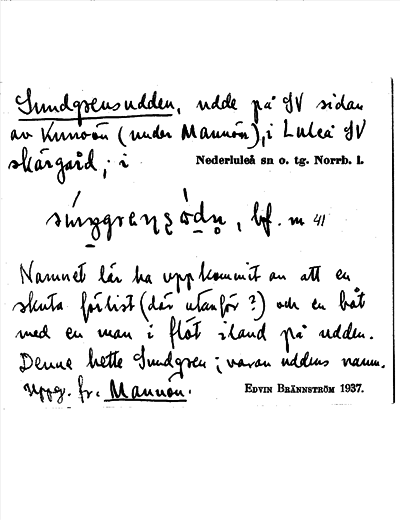 Sundgrensudden, udde på SV sidan
av Kunoön (under Mannön), i Luleå SV
skärgård; i Nederluleå sn o. tg. Norrb. l.
bf. m 41
Namnet lär ha uppkommit av att en
skuta förlist (där utanför ?) och en båt
med en man i flöt iland på udden.
Denne hette Sundgren; varav uddens namn.
Uppg. fr. Mannön. EDVIN BRÄNNSTRÖM 1937.